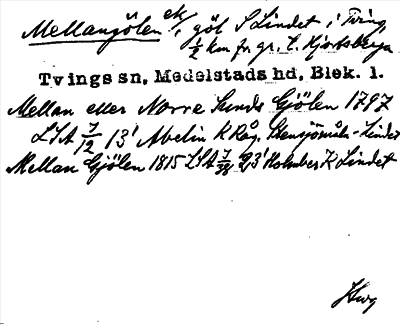 Mellangölen ek/, göl S Lindet i Tving,
½ km fr. gr. t. Hjortsberga
Tvings sn, Medelstads hd, Blek. l.
Mellan eller Norre Sunds Gjölen 1797
LSA 7/12 13' Abelin K Råg. Stensjömåla-Lindet
Mellan Gjölen 1815 LSA 7/28 23' Holmberg K Lindet